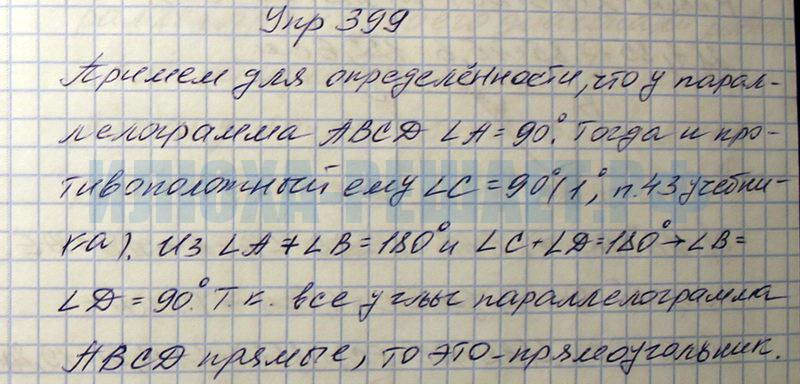 Упр 399
Примем для определённости, что у парал-
лелограмма ABCD ∠A = 90°. Тогда и про-
тивоположный ему ∠C = 90° (1°, п. 43 учебни-
ка). Из ∠A + ∠B = 180° и ∠C + ∠D = 180° → ∠B =
∠D = 90°. Т.к. все углы параллелограмма
ABCD прямые, то это - прямоугольник.